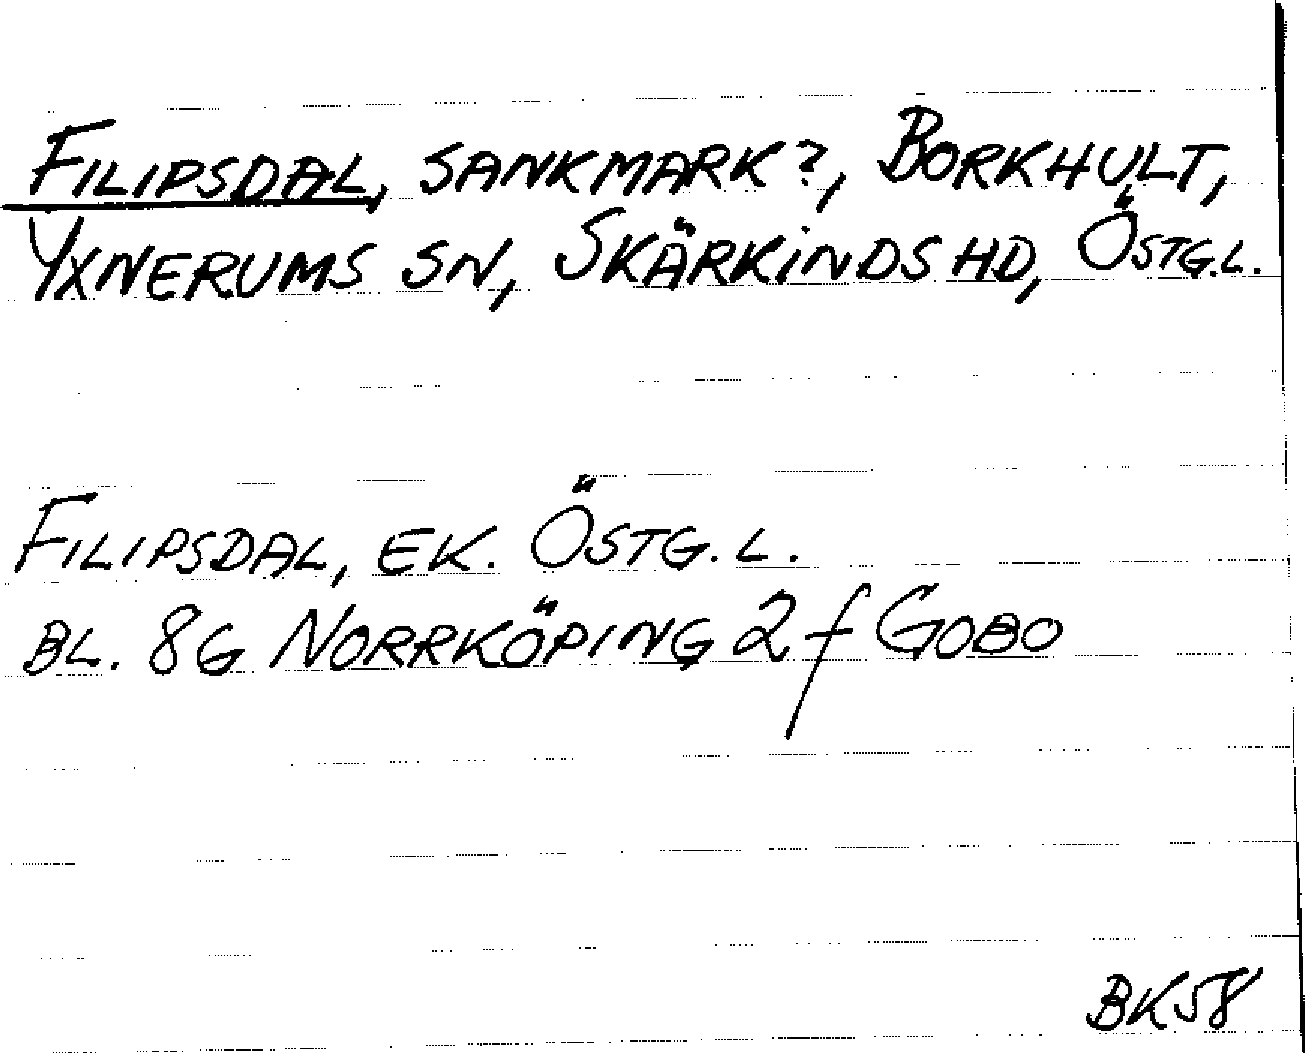 FILIPSDAL, SANKMARK?, BORKHULT,
YXNERUMS SN, SKÄRKINDS HD, ÖSTG.L.
FILIPSDAL, EK. ÖSTG. L.
BL. 8G NORRKÖPING 2 f GOBO
BK58